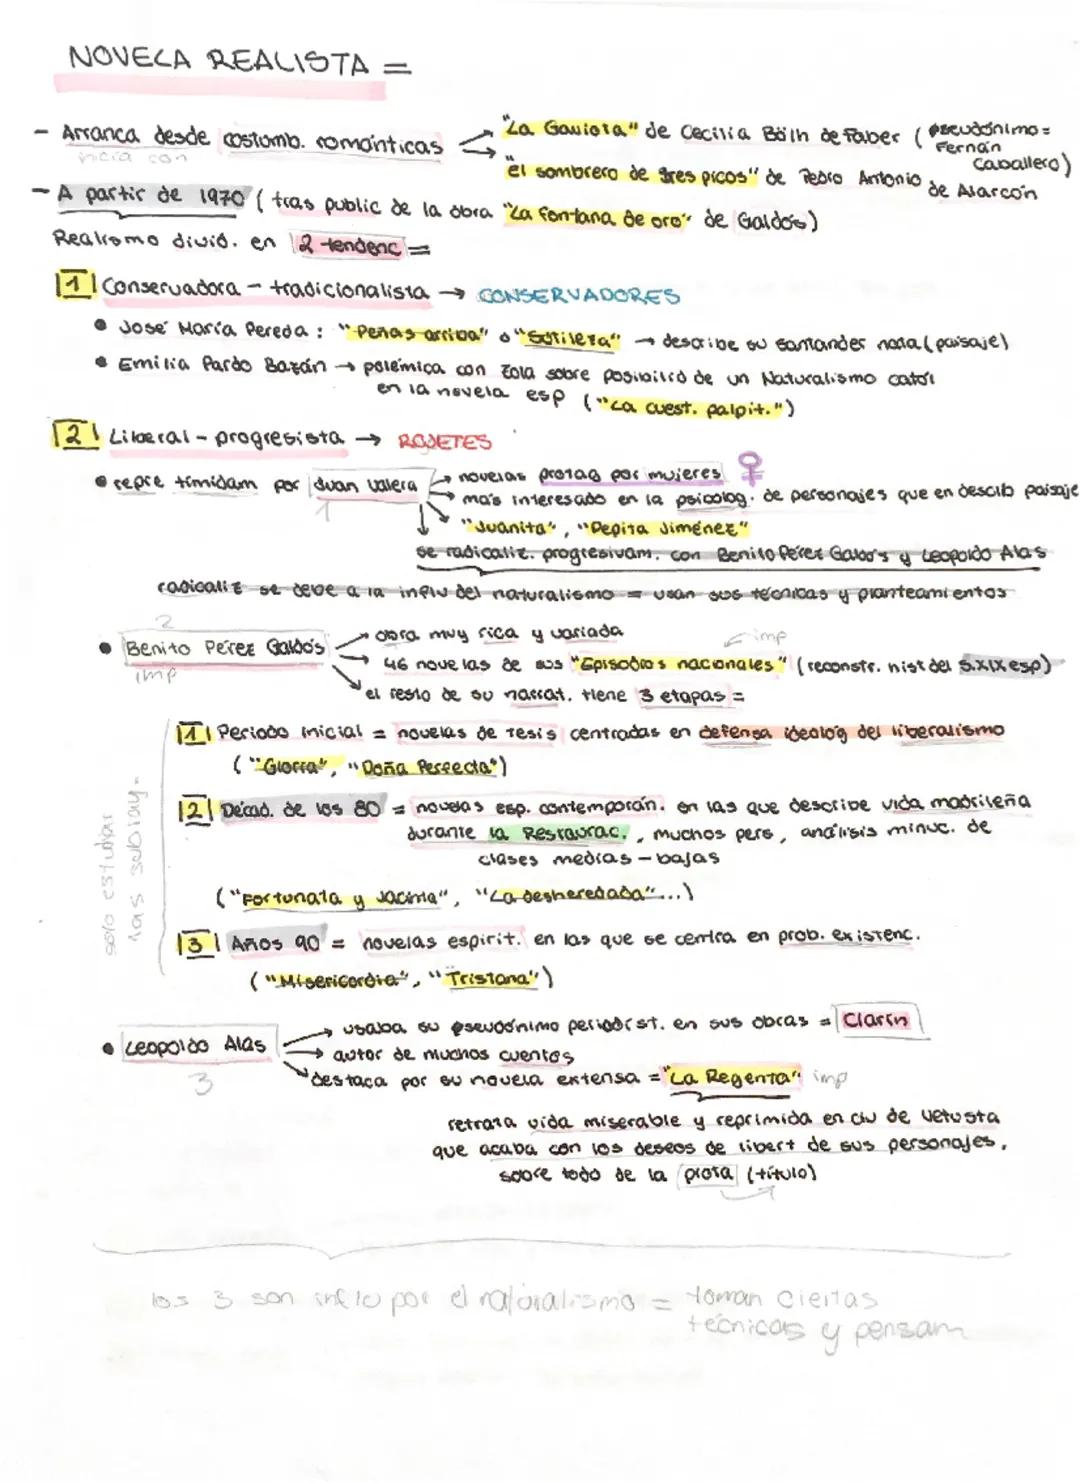 NOVELA REALISTA =
- Arranca desde costumb. románticas
inicia con
"La Gaviota" de Cecilia Bölh de Faber (pseudónimo = Fernán Caballero)
"el sombrero de tres picos" de Pedro Antonio de Alarcón
- A partir de 1970 (tras public de la obra "La fontana de oro" de Galdós)
Realismo divid. en 2 tendenc =
1 Conservadora - tradicionalista → CONSERVADORES
• José María Pereda : "Peñas arriba" o "Sotileza" → describe su santander natal (paisaje)
• Emilia Pardo Bazán → polémica con Zola sobre posibilid de un Naturalismo catól
en la novela esp ("La cuest. palpit.")
2 Liberal - progresista → ROJETES
• repre tímidam por Juan Valera
1
→ novelas protag por mujeres ♀
→ más interesado en la psicolog. de personajes que en describ paisaje
"Juanita", "Pepita Jiménez"
se radicaliz. progresivam. con Benito Pérez Galdós y Leopoldo Alas
radicaliz se debe a la influ del naturalismo = usan sus técnicas y planteamientos
2
• Benito Pérez Galdós
imp
→ obra muy rica y variada
imp
→ 46 novelas de sus "Episodios nacionales" (reconstr. hist del S.XIX esp)
→ el resto de su narrat. tiene 3 etapas =
solo estudiar
las subray-
1 Periodo inicial = novelas de tesis centradas en defensa ideológ del liberalismo
("Gloria", "Doña Perfecta")
2 Décad. de los 80 = novelas esp. contemporán. en las que describe vida madrileña
durante la Restaurac., muchos pers, análisis minuc. de
clases medias - bajas
("Fortunata y Jacinta", "La desheredada"...)
3 Años 90 = novelas espirit. en las que se centra en prob. existenc.
("Misericordia", "Tristana")
• Leopoldo Alas
3
→ usaba su pseudónimo periodíst. en sus obras = Clarín
→ autor de muchos cuentos
→ destaca por su novela extensa = "La Regenta" imp
retrata vida miserable y reprimida en ciu de Vetusta
que acaba con los deseos de libert de sus personajes,
sobre todo de la prota (título)
los 3 son influ por el naturalismo = toman ciertas
técnicas y pensam